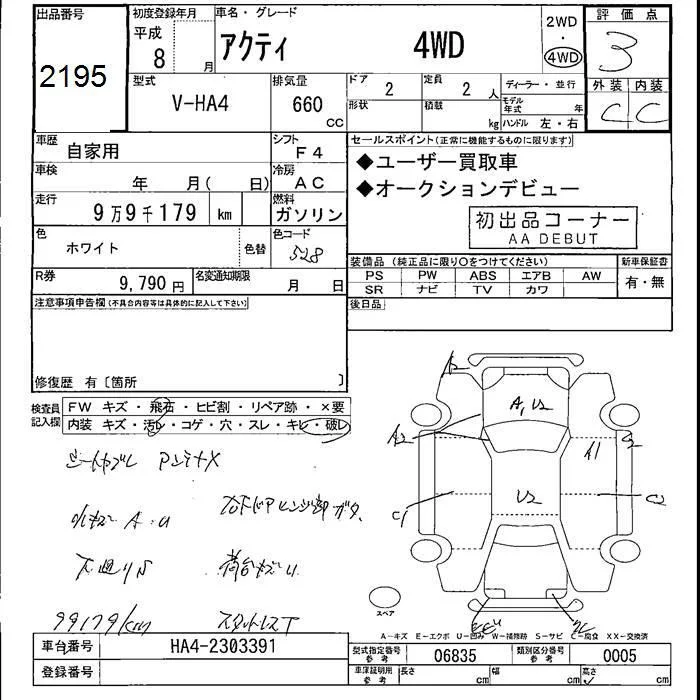 出品番号
2195
初度登録年月
平成
8
月
車名・グレード
アクティ 4WD
2WD
・
4WD
評価点
3
外装 内装
C C
型式
V-HA4
排気量
660
CC
ドア
2
定員
2 人
形状
積載
kg
ディーラー・並行
モデル年式 年
ハンドル 左・右
車歴
自家用
シフト
F4
車検
年 月( 日)
冷房
AC
走行
9万9千179 km
燃料
ガソリン
色
ホワイト
色替
色コード
528
R券
9,790 円
名変通知期限
月 日
セールスポイント(正常に機能するものに限ります)
◆ユーザー買取車
◆オークションデビュー
初出品コーナー
AA DEBUT
装備品 (純正品に限り○をつけてください)
PS PW ABS エアB AW
SR ナビ TV カワ
新車保証書
有・無
後日品
注意事項申告欄(不具合内容等は具体的に記入して下さい)
修復歴 有〔箇所 〕
検査員記入欄
FW キズ・飛石・ヒビ割・リペア跡・×要
内装 キズ・汚レ・コゲ・穴・スレ・キレ・破レ
アンテナX
下廻りS
荷台キズU
99179km
スタットレスT
A2
A,U2
A2
A1
U2
C1
C2
スペア
A-キズ E-エクボ U-凹み W-補修跡 S-サビ C-腐食 XX-交換済
車台番号
HA4-2303391
登録番号
型式指定番号
参考
06835
類別区分番号
参考
0005
車庫証明用
参考
長さ cm
幅 cm
高さ cm